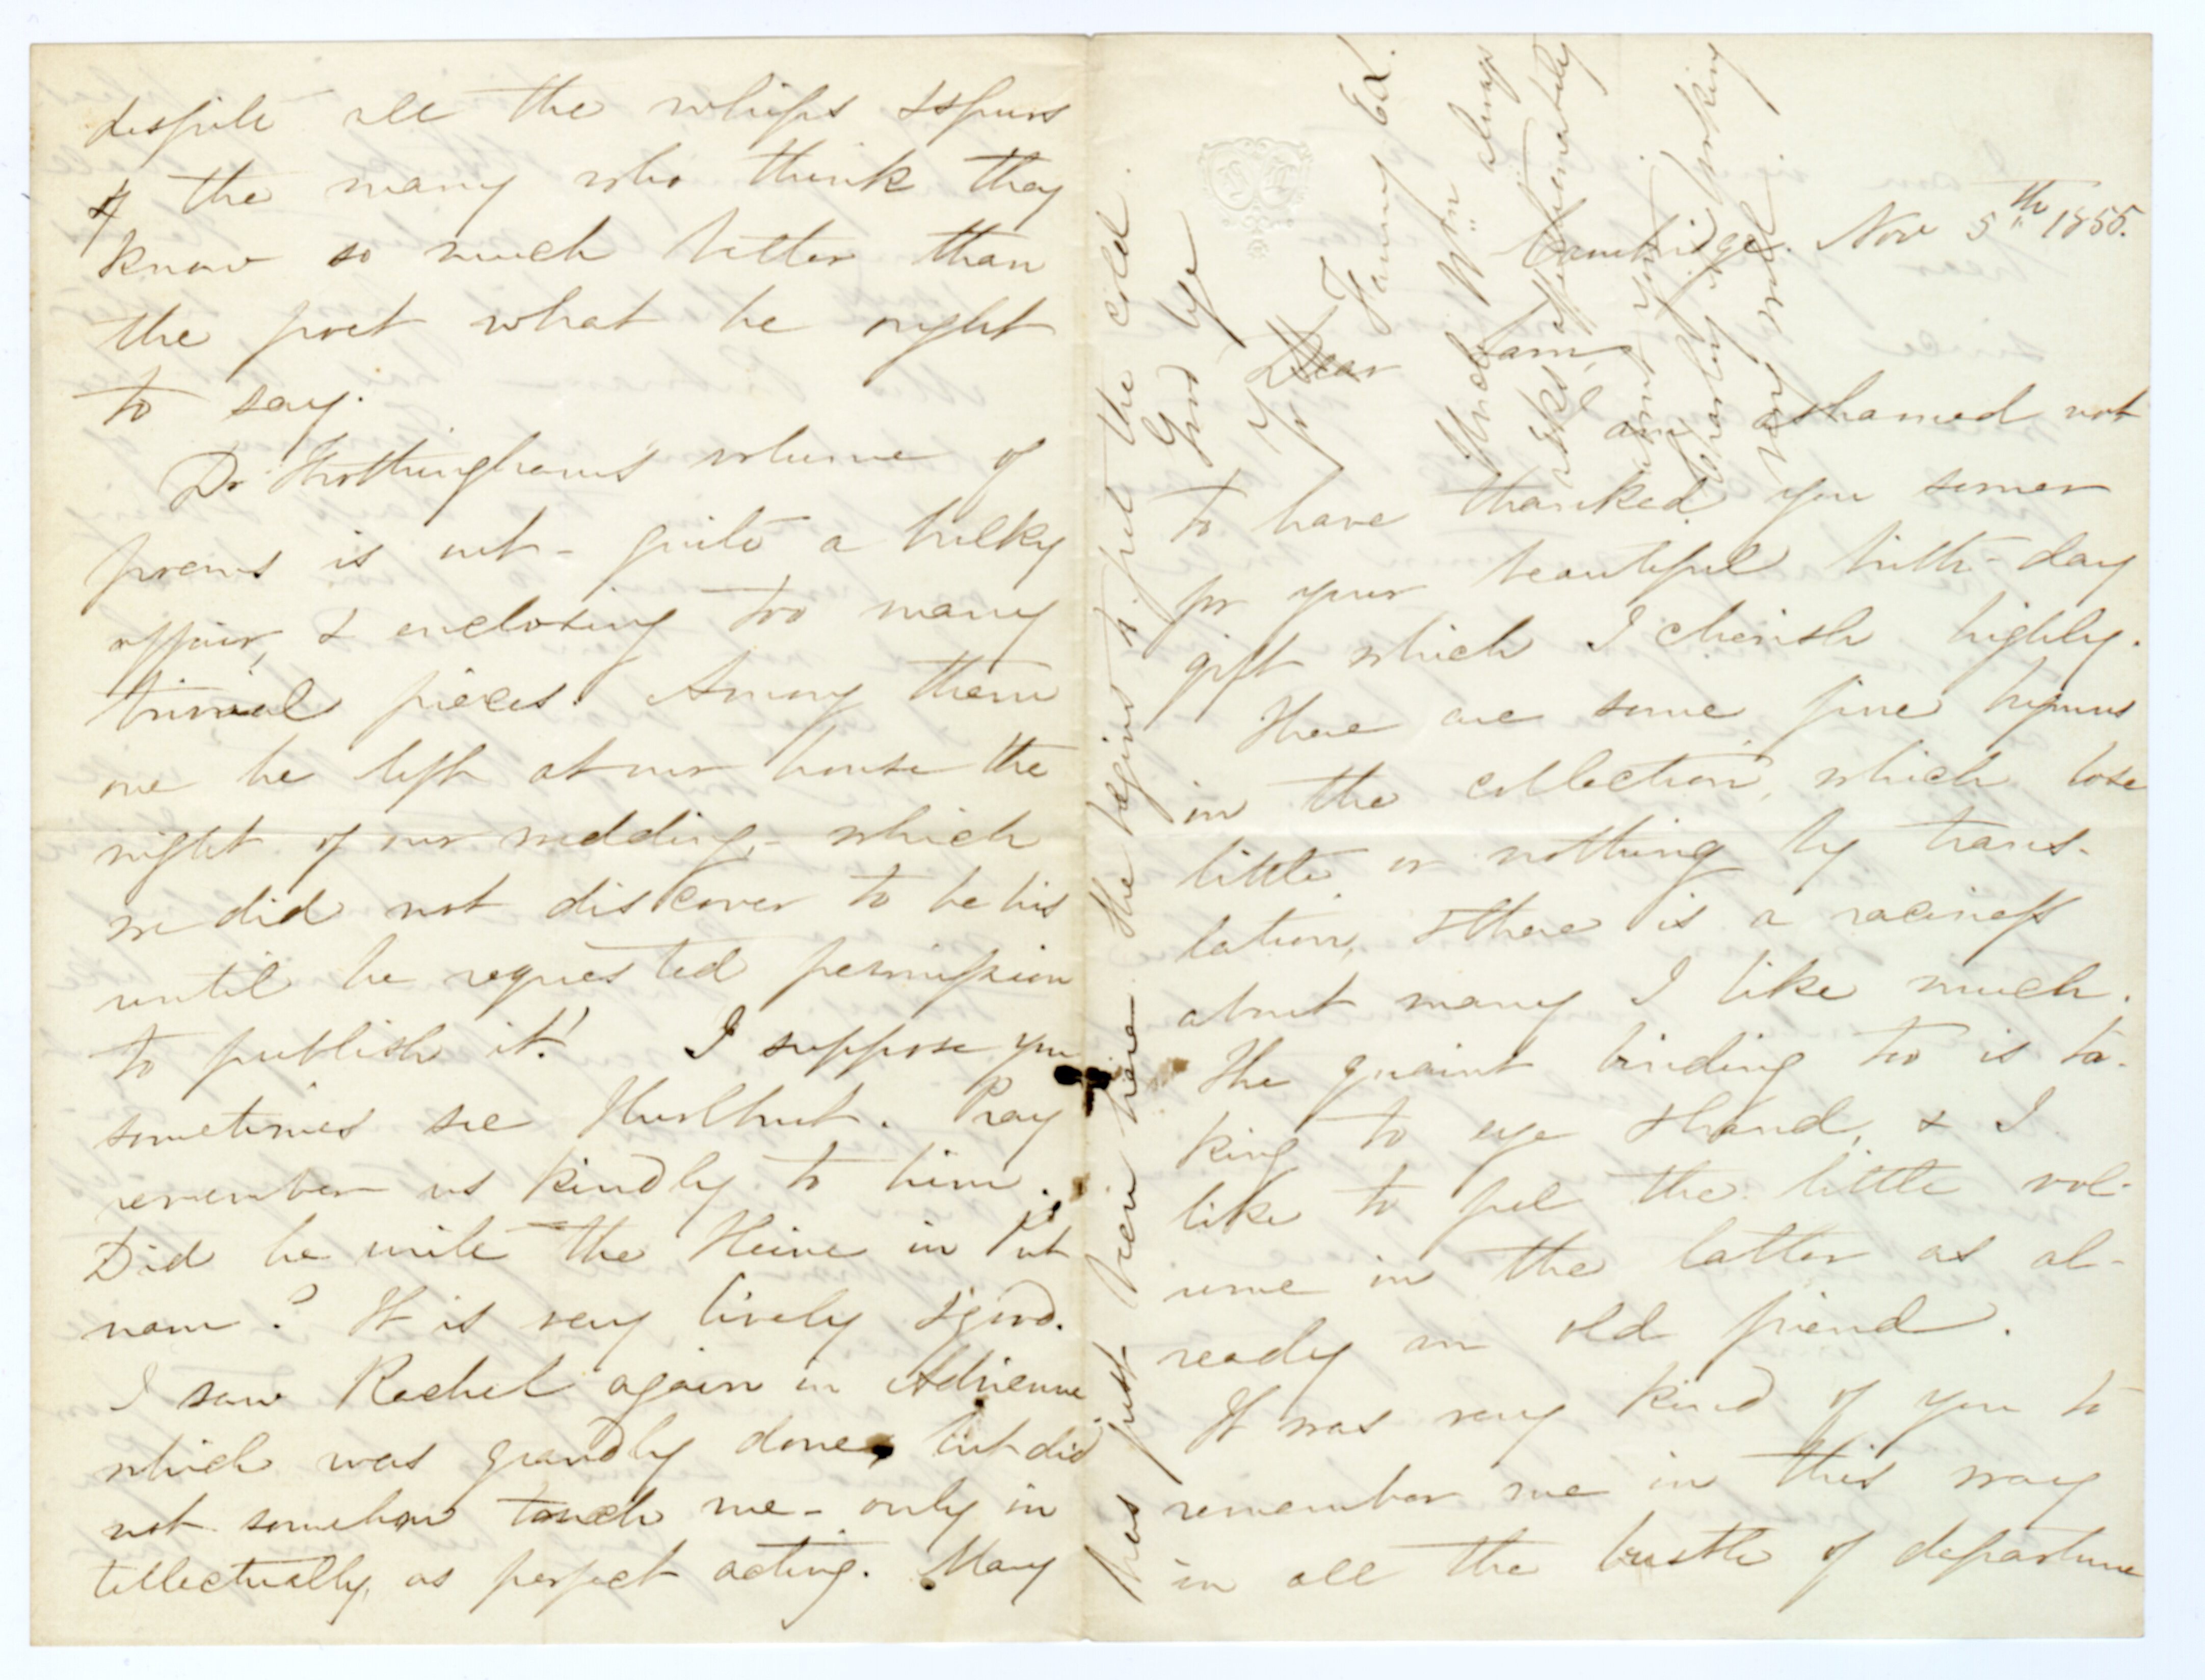 despite all the whips & spurs
of the many who think they
know so much better than
the poet what he ought
to say.
Dr Frothingham's volume of
poems is out - quite a bulky
affair, & enclosing too many
trivial pieces. Among them
one he left at our house the
night of our wedding, - which
we did not discover to be his
until he requested permission
to publish it! I suppose you
sometimes see Hurlbut. Pray
remember us kindly to him.
Did he write the Heine in Put
nam? It is very lively & good.
I saw Rachel again in Adrienne
which was grandly done, but did
not somehow touch me - only in
tellectually, as perfect acting. Mary
has just been here. She begins to feel the cold.
Good bye
Yr Fanny E L.
Cambridge. Nov 5th 1855.
Dear Sam,
I am ashamed not
to have thanked you sooner
for your beautiful birth-day
gift which I cherish highly.
There are some fine hymns
in the collection, which lose
little or nothing by trans-
lation, & there is a raciness
about many I like much.
The quaint binding too is ta-
king to eye & hand, & I
like to feel the little vol-
ume in the latter as al-
ready an old friend.
It was very kind of you to
remember me in this way
in all the bustle of departure
Uncle Wm always
asks affectionately
about you
Charley is working
very well